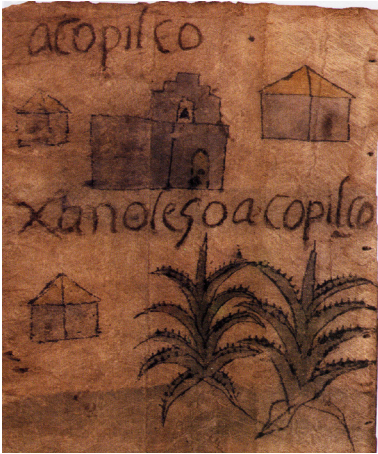 acopilco
xanolesoacopilco